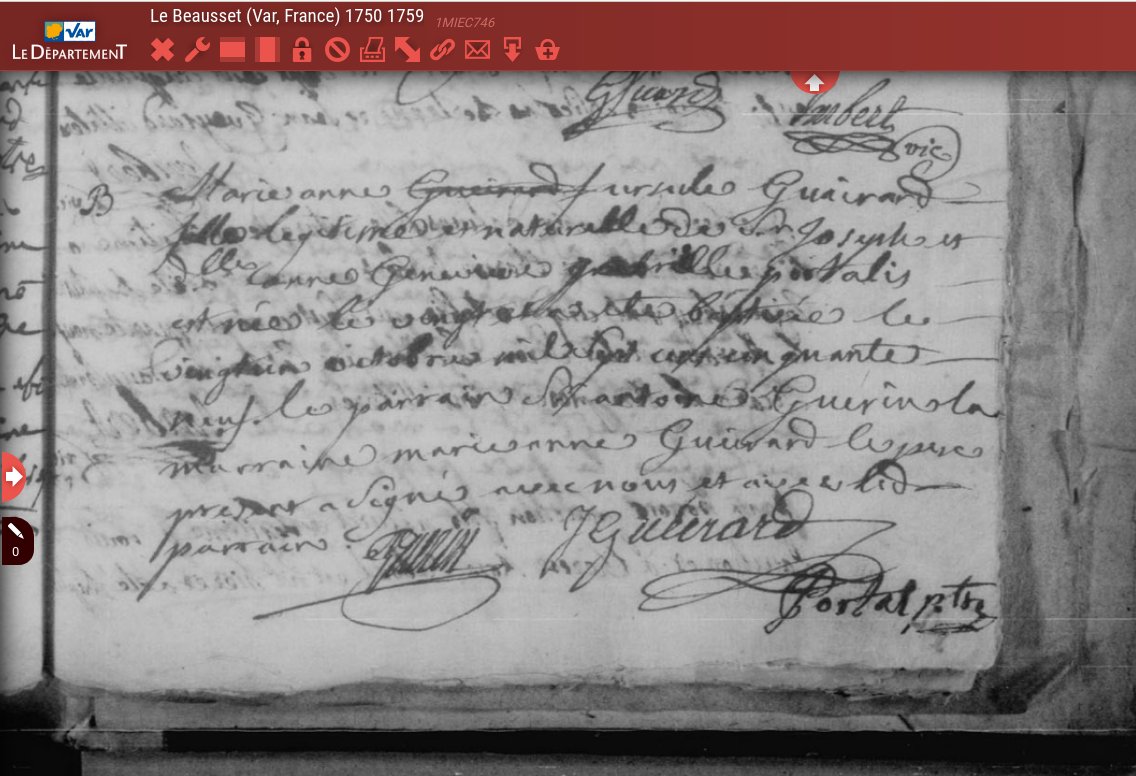 Le Beausset (Var, France) 1750 1759
1MIEC746
VAR
LE DÉPARTEMENT
Guerard
Imbert
vic
B
Marie anne Gueirard ursule Guairard
fille legitime et naturelle de Sr Joseph et
dlle anne Genevieve portalis
est née le vingt et a este batisée le
vingtun octobre mil sept cens cinquante
neuf. le parrain Sr antoine Guerin la
marraine marie anne Gueirard le pere
present a Signé avec nous et avec led
parrain
Guerin
JGueirard
Portal ptre
0